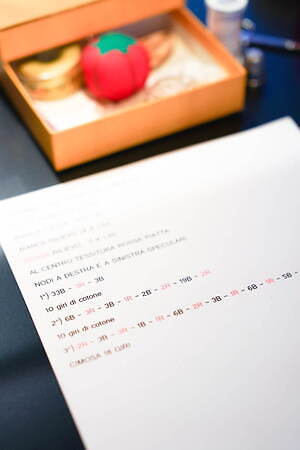 BIANCA RILIEVO
RILIEVO
AL CENTRO TESSITURA ROSSA PIATTA
NODI A DESTRA E A SINISTRA SPECULARI
1°) 33B - 3R - 3B
10 giri di cotone
2°) 6B - 3R - 3B - 1R - 2B - 2R - 19B - 2R
10 giri di cotone
3°) 2R - 3B - 3R - 1B - 1R - 6B - 2R - 3B - 1R - 6B - 1R - 5B -
CIMOSA 18 GIRI